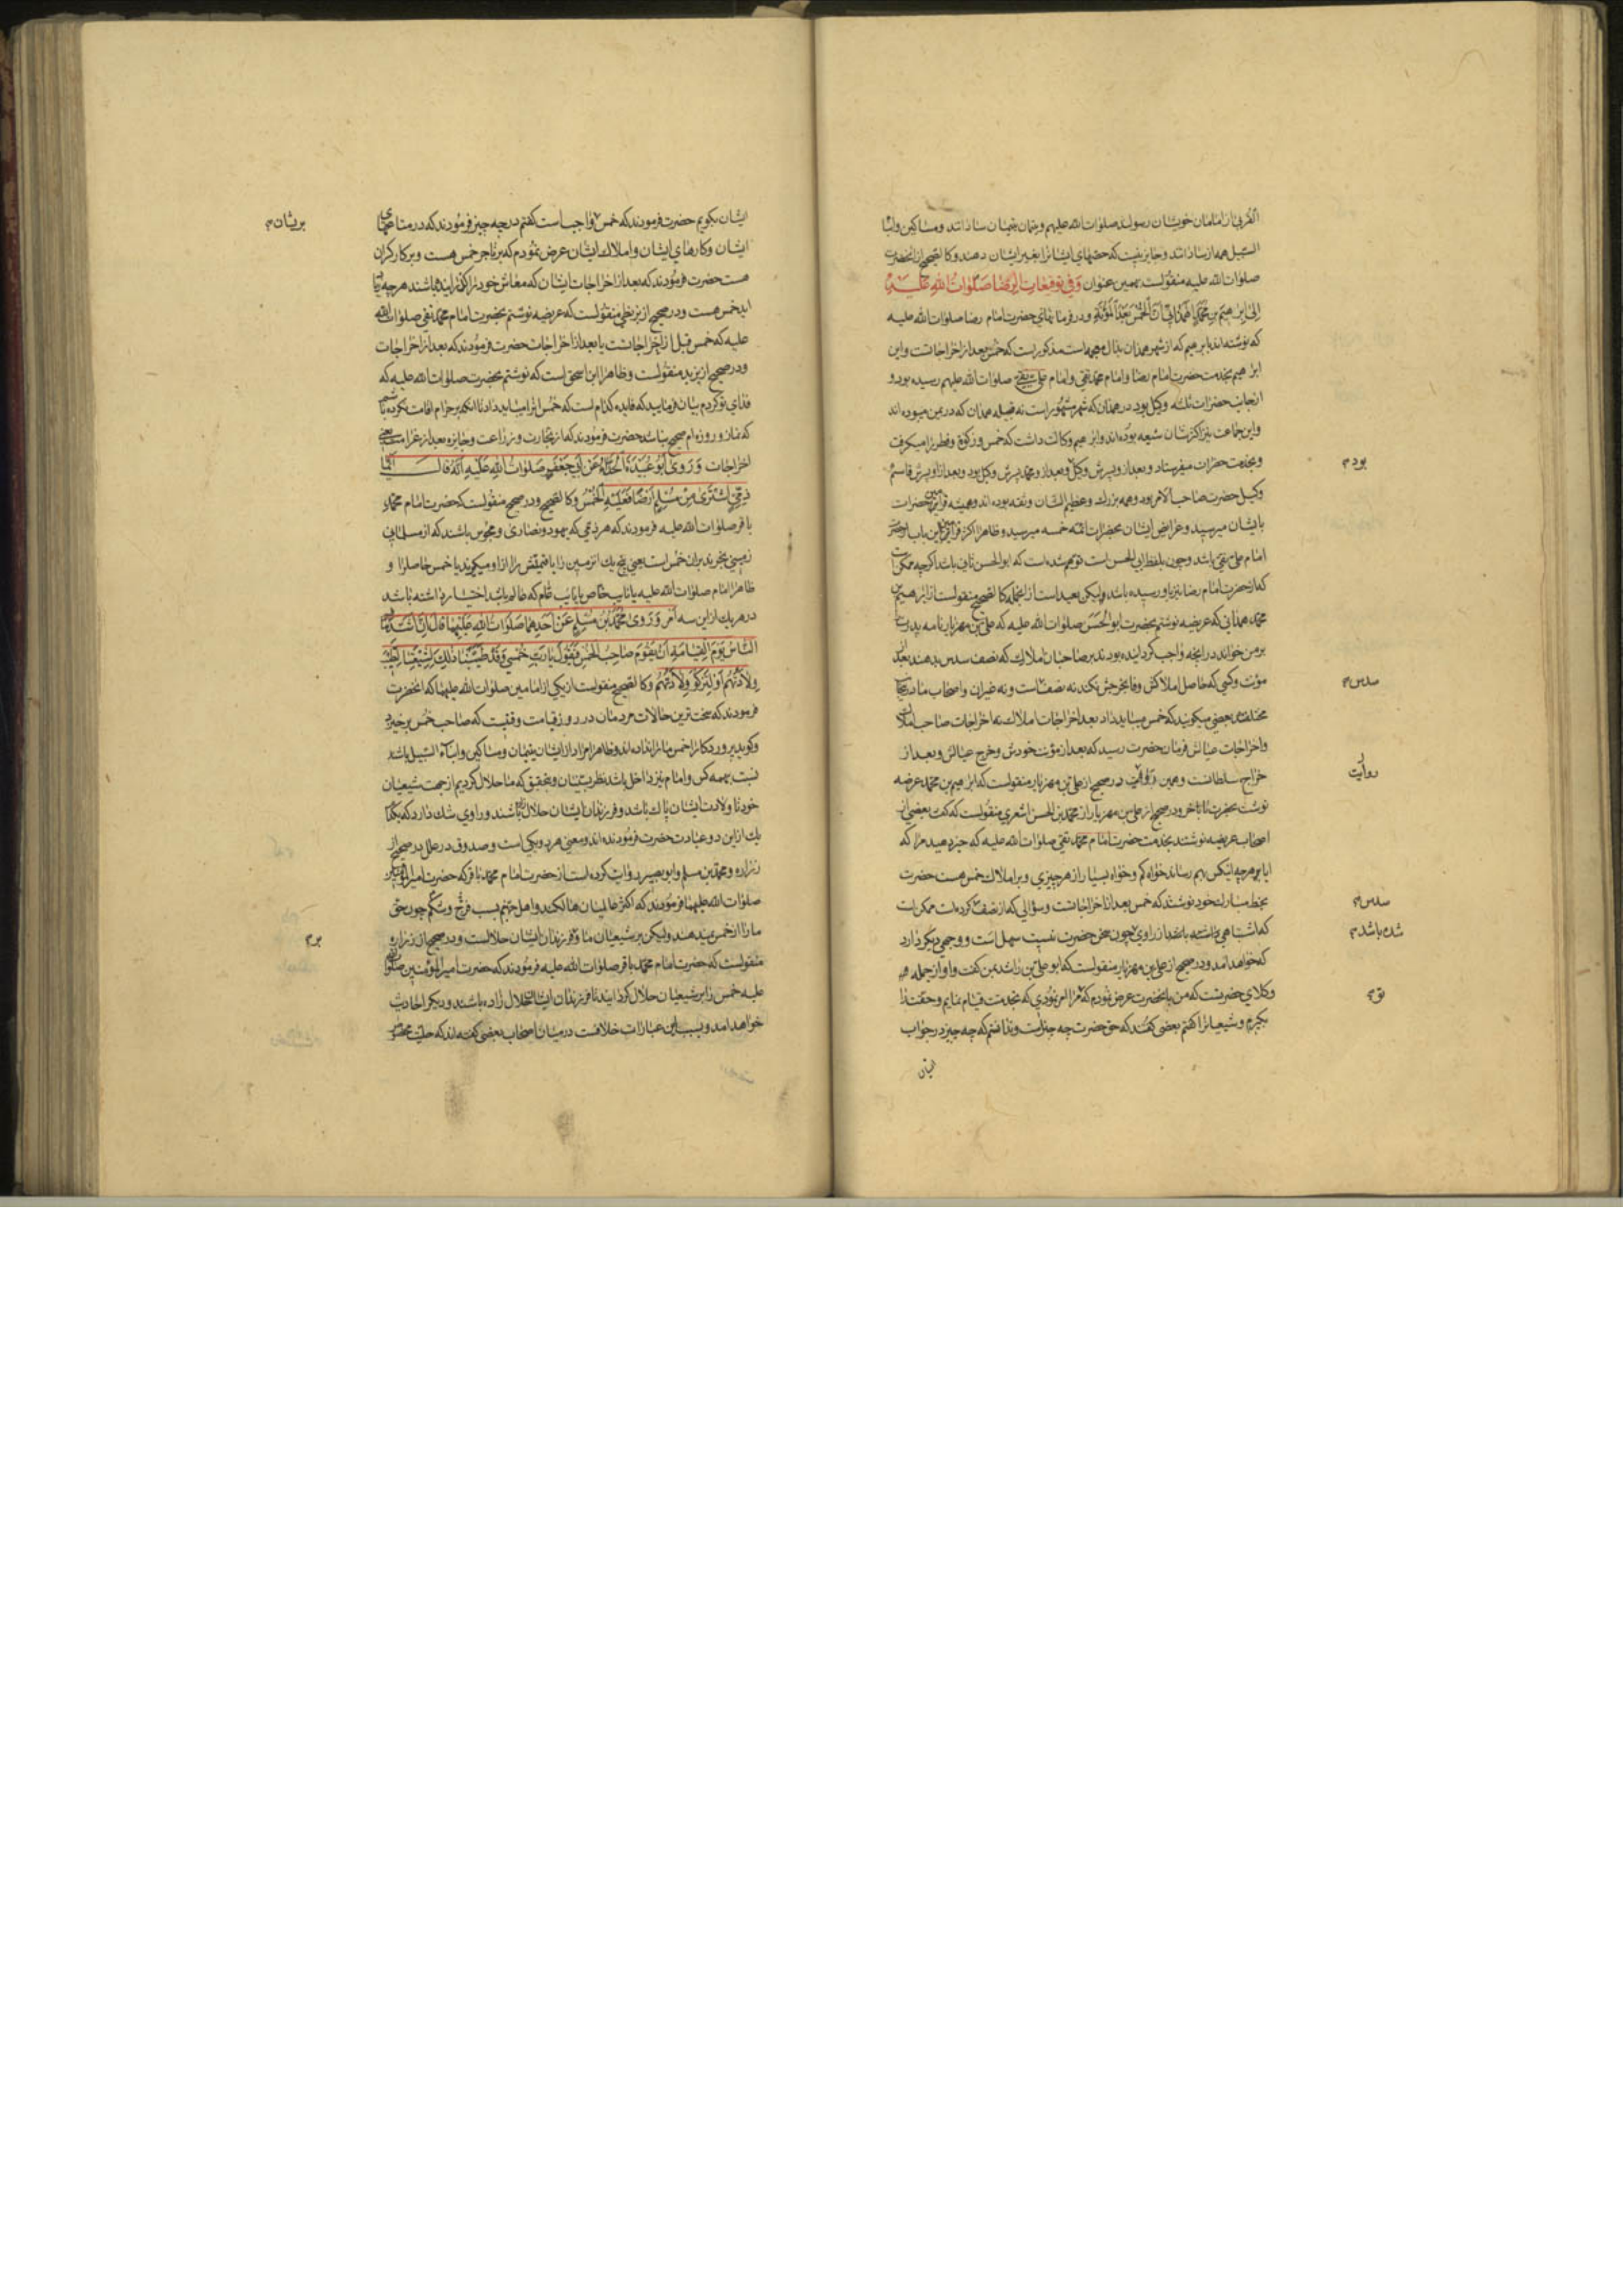 القربی از امامان خویشان رسولند صلوات الله علیهم و یتمان یتیمان ساداتند و مساکین و ابنا
السبیل همه از ساداتند و جایز نیست که حصّهای ایشانرا بغیر ایشان دهند و کالصحیح از انحضرت
صلوات الله علیه منقولست بهمین عنوان وَفِي تَوقِيعَاتِ الرِّضَا صَلَوَاتُ اللهِ عَلَيْهِ
إِلَى إِبْرَاهِيمَ بْنِ مُحَمَّدٍ الْهَمْدَانِيِّ أَنَّ الْخُمْسَ بَعْدَ الْمَؤُنَةِ و در فرمانهای حضرت امام رضا صلوات الله علیه
که نوشته اند بابرهیم که از شهر همدان بذال معجمه است مذکور است که خمس بعد از اخراجاتست و این
ابرهیم بخدمت حضرت امام رضا و امام محمد تقی و امام علی نقی صلوات الله علیهم رسیده بود و
از جانب حضرات ثلثه وکیل بود در همدان که شهر مشهور است نه قبیله همدان که در یمن میبوده اند
و این جماعت نیز اکثرشان شیعه بوده اند و ابرهیم وکالت داشت که خمس و زکوة و فطره را میگرفت
و بخدمت حضرات میفرستاد و بعد از و پسرش وکیل و بعد از و محمد پسرش وکیل بود و بعد از او پسرش قاسم
بود م
وکیل حضرت صاحب الامر بود و همه بزرك و عظیم الشان و ثقه بوده اند و همیشه فرامین حضرات
بایشان میرسید و عرایض ایشان بحضرات ائمه خمسه میرسید و ظاهرا اکثر فرامین این باب از حضرت
امام علی نقی باشد و چون بلفظ ابی الحسن است توهم شده است که ابو الحسن ثانی باشد اگرچه ممکن است
که از حضرت امام رضا نیز باو رسیده باشد ولیکن بعید است از انجمله کالصحیح منقولست از ابرهیم بن
محمد همدانی که عریضه نوشتم بحضرت ابو الحسن صلوات الله علیه که علی بن مهزیار نامه پدرت را
بر من خواند در آنچه واجب گردانیده بودند بر صاحبان املاك که نصف سدس بدهند بعد از
مؤنت و کسی که حاصل املاکش وفا بخرجش نکند نه نصف است و نه غیر ان و اصحاب ما در اینجا
سدس م
مختلفند بعضی میگویند که خمس میباید داد بعد از اخراجات املاك نه اخراجات صاحب املاك
و اخراجات عیالش فرمان حضرت رسید که بعد از مؤنت خودش و خرج عیالش و بعد از
خراج سلطانست و همین در صحیح از علی بن مهزیار منقولست که ابرهیم بن محمد عریضه
روایت
نوشت بحضرت تا باخر و در صحیح از علی بن مهزیار از محمد بن الحسن اشعری منقولست که گفت بعضی از
اصحاب عریضه نوشتند بخدمت حضرت امام محمد تقی صلوات الله علیه که خبر دهید مرا که
ایا بر هرچه انکس بهم رساند خواه کم و خواه بسیار از هر چیزی و بر املاك خمس هست حضرت
بخط مبارك خود نوشتند که خمس بعد از اخراجاتست و سؤالی که از نصف کرده است ممکن است
سدس م
که اشتباهی باشد از راوی چون سخن حضرت نیست سهل است و وجهی دیگر دارد
شده باشد م
که خواهد امد و در صحیح از علی بن مهزیار منقولست که ابو علی بن راشد بمن گفت و او از جمله
وکلای حضرتست که من بانحضرت عرض نمودم که مرا امر نمودی که بخدمت قیام نمایم و حقت را
تو م
بگیرم و شیعیانرا گفتم بعضی گفتند که حق حضرت چه چیز است و ندانستم که چه چیز در جواب
ایشان
ایشان بگویم حضرت فرمودند که خمس واجب است گفتم در چه چیز فرمودند که در متاعهای
بریشان م
ایشان و کارهای ایشان و املاك ایشان عرض نمودم که بر تاجر خمس هست و بر کارگران
هست حضرت فرمودند که بعد از اخراجات ایشان که معاش خود را گذرانیده باشند هرچه زیاد
اید خمس هست و در صحیح از بزنطی منقولست که عریضه نوشتم بحضرت امام محمد تقی صلوات الله
علیه که خمس قبل از اخراجاتست یا بعد از اخراجات حضرت فرمودند که بعد از اخراجات
و در صحیح از یزید منقولست و ظاهرا ابن اسحق است که نوشتم بحضرت صلوات الله علیه که
فدای تو گردم بیان فرمایید که فایده کدام است که خمس انرا میباید داد تا انکه بر حرام اقامت نکرده باشم
که نماز و روزه ام صحیح نباشد حضرت فرمودند که از تجارت و زراعت و جایزه بعد از غرامت یعنی
اخراجات وَ رَوَى أَبُو عُبَيْدَةَ الْحَذَّاءُ عَنْ أَبِي جَعْفَرٍ صَلَوَاتُ اللهِ عَلَيْهِ أَنَّهُ قَالَ أَيُّمَا
ذِمِّيٍّ اشْتَرَى مِنْ مُسْلِمٍ أَرْضًا فَعَلَيْهِ الْخُمْسُ و کالصحیح و در صحیح منقولست که حضرت امام محمد
باقر صلوات الله علیه فرمودند که هر ذمی که یهود و نصاری و مجوس باشند که از مسلمانی
زمینی بخرند بران خمس است یعنی پنج یك ان زمین را یا قیمتش را از او میگیرند یا خمس حاصلرا و
ظاهرا امام صلوات الله علیه یا نایب خاص یا نایب عام که عالم باشد اختیار داشته باشد
در هر یك از این سه امر وَ رَوَى مُحَمَّدُ بْنُ مُسْلِمٍ عَنْ أَحَدِهِمَا صَلَوَاتُ اللهِ عَلَيْهِمَا قَالَ إِنَّ أَشَدَّ مَا
النَّاسُ يَوْمَ الْقِيَامَةِ أَنْ يَقُومَ صَاحِبُ الْخُمْسِ فَيَقُولَ يَا رَبِّ خُمْسِي وَ قَدْ طَيَّبْنَا ذَلِكَ لِشِيعَتِنَا لِتَطِيبَ
وِلَادَتُهُمْ أَوْ لِتَزْكُوَ وِلَادَتُهُمْ و کالصحیح منقولست از یکی از امامین صلوات الله علیهما که انحضرت
فرمودند که سخت ترین حالات مردمان در روز قیامت وقتیست که صاحب خمس برخیزد
و گوید پروردگارا خمس مرا نداده اند و ظاهرا مراد از ایشان یتیمان و مساکین و ابناء السبیل باشد
نسبت بهمه کس و امام نیز داخل باشد نظر بسنیان و بتحقیق که ما حلال کردیم از جهت شیعیان
خود تا ولادت ایشان پاك باشد و فرزندان ایشان حلال باشند و راوی شك دارد که بکدام
یك از این دو عبارت حضرت فرموده اند و معنی هر دو یکی است و صدوق در علل در صحیح از
زراره و محمد بن مسلم و ابو بصیر روایت کرده است از حضرت امام محمد باقر که حضرت امیر المؤمنین
صلوات الله علیهما فرمودند که اکثر عالمیان هالکند و اهل جهنم بسبب فرج و شکم چون حق
ما را از خمس نمیدهند ولیکن بر شیعیان ما و فرزندان ایشان حلالست و در صحیح از زراره
بر م
منقولست که حضرت امام محمد باقر صلوات الله علیه فرمودند که حضرت امیر المؤمنین صلوات الله
علیه خمس را بر شیعیان حلال گردانید تا فرزندان ایشان حلال زاده باشند و دیگر احادیث
خواهد امد و بسبب این عبارات خلافست در میان اصحاب بعضی گفته اند که